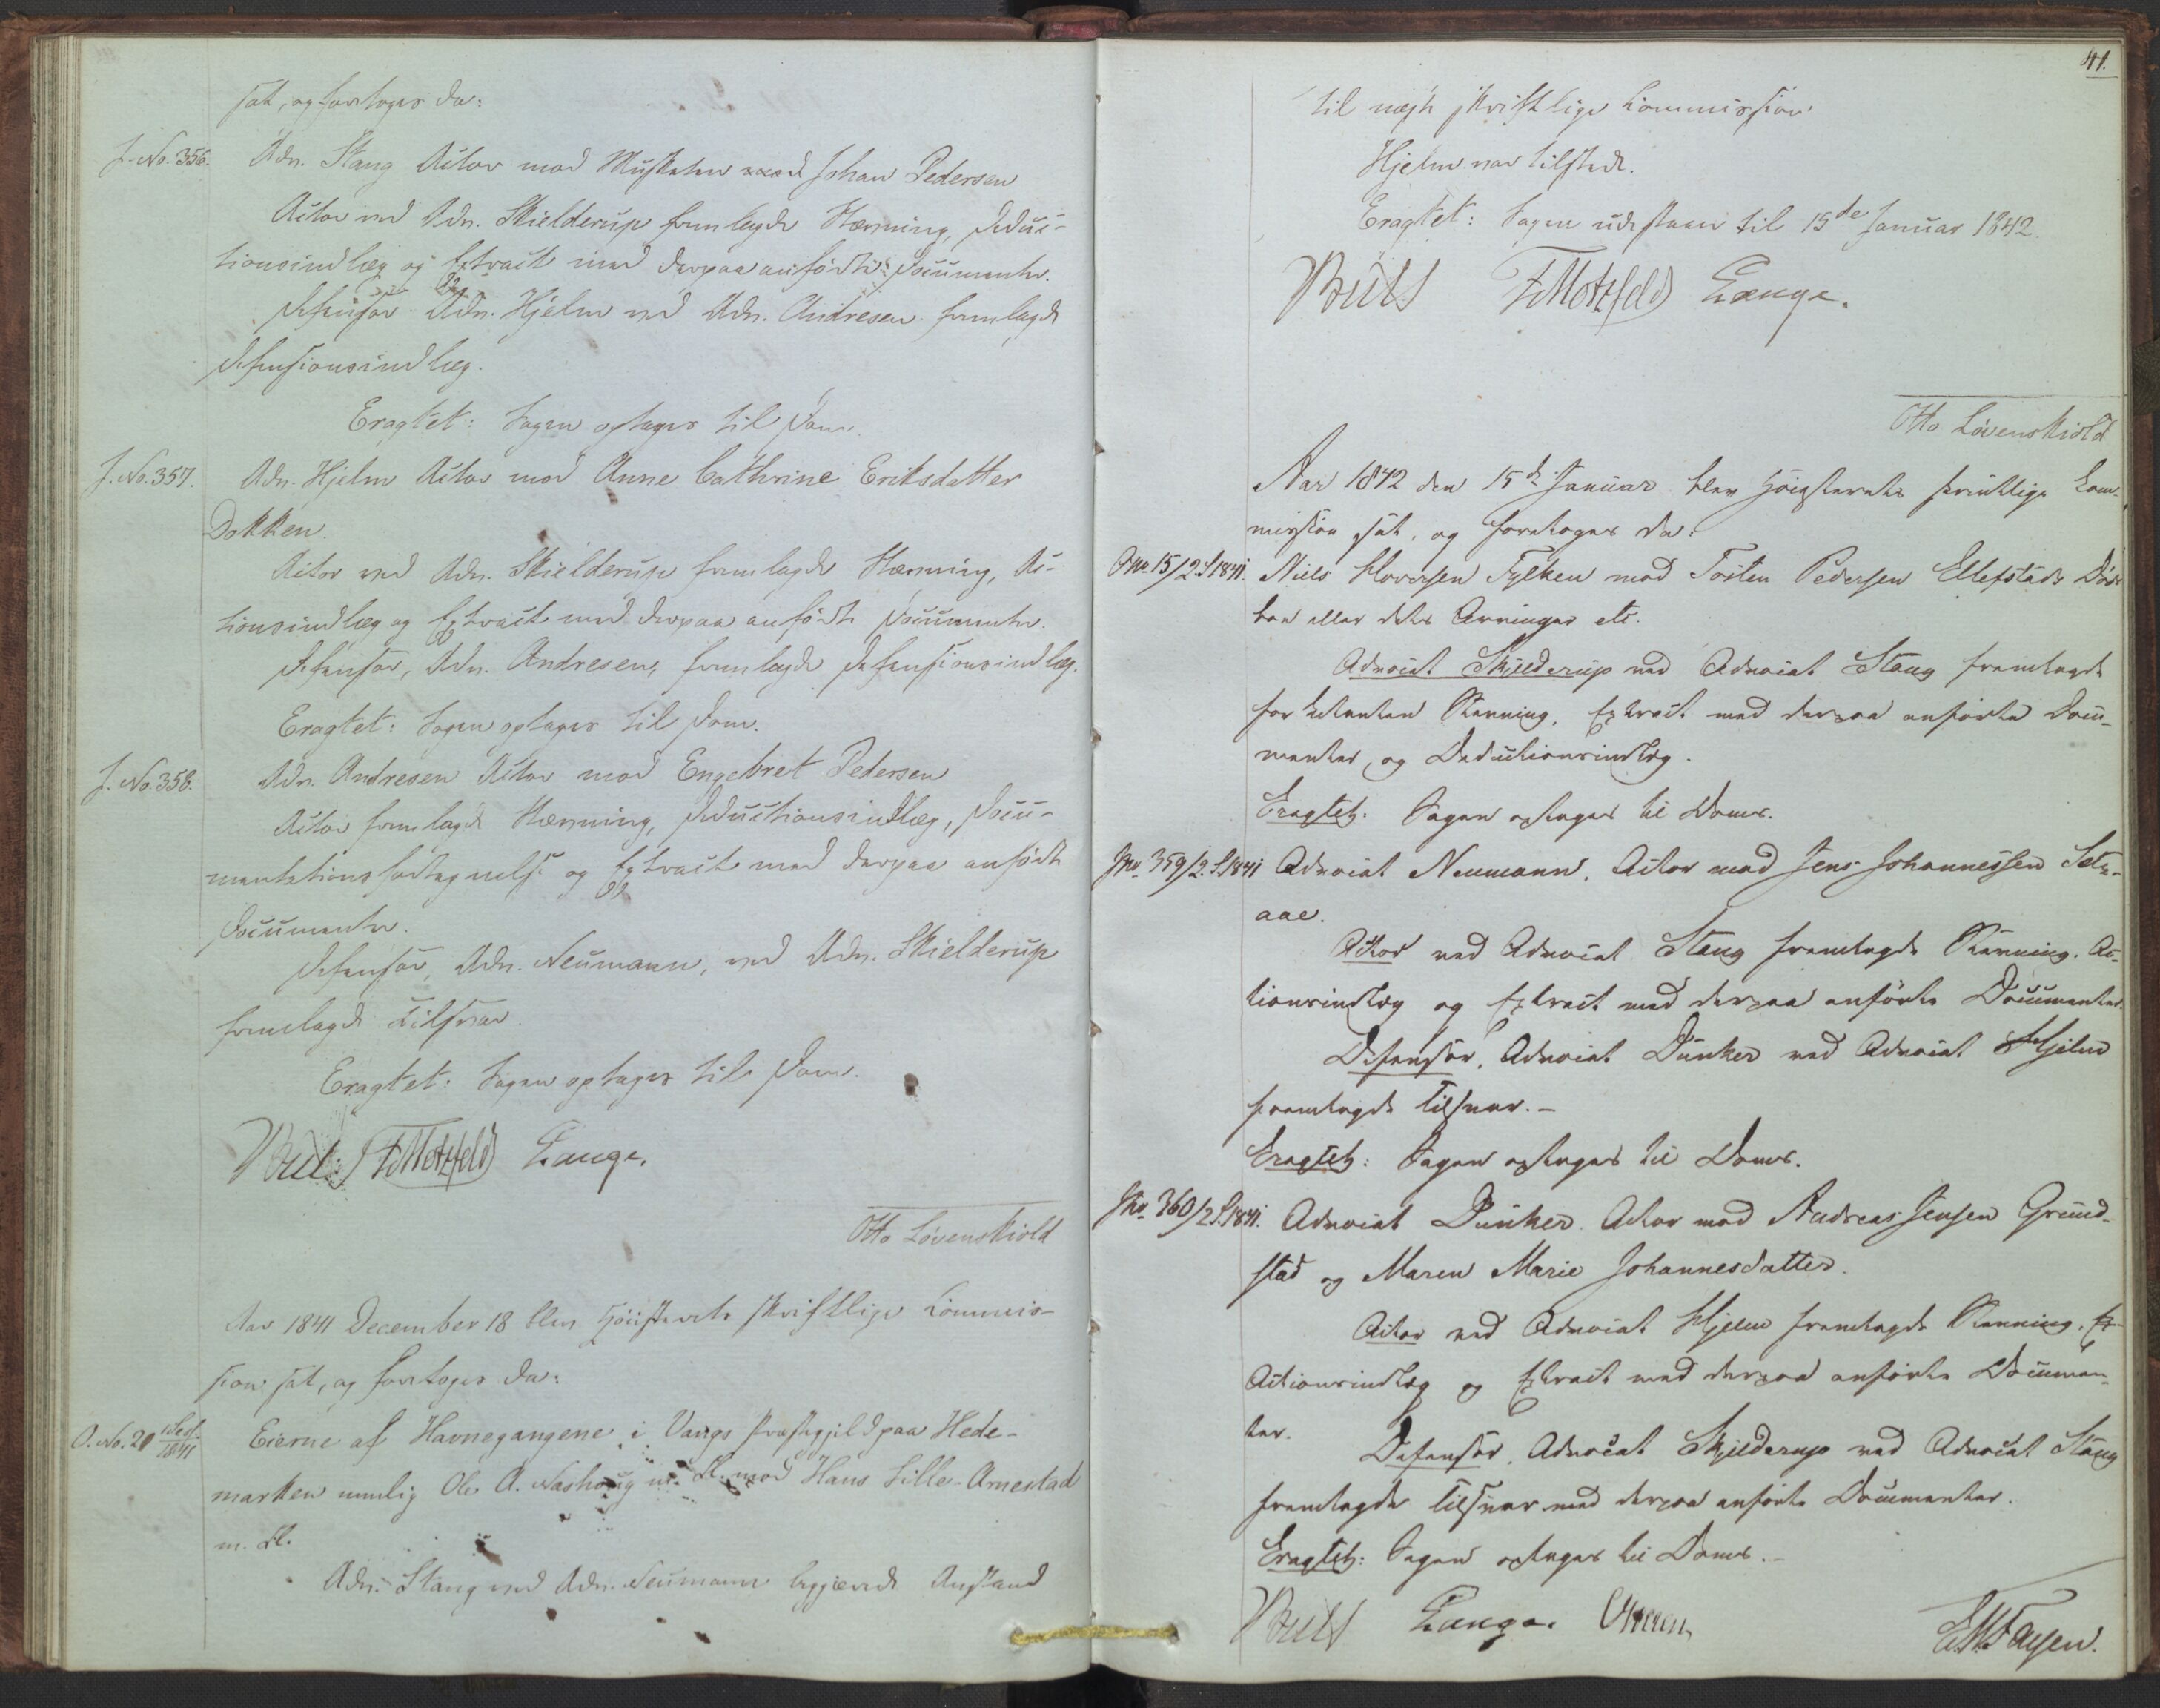 sat, og foretoges da:
J. No. 356. Adv. Stang Actor mod Musketeer Johan Pedersen
Actor ved Adv. Skielderup fremlagde Stævning, Deduc-
tionsindlæg og Extract med derpaa anførte Documenter.
Defensor Adv. Hjelm ved Adv. Andresen fremlagde
Defensionsindlæg.
Eragtet: Sagen optages til Dom.
J. No. 357. Adv. Hjelm Actor mod Anne Cathrine Eriksdatter
Dokken.
Actor ved Adv. Skielderup fremlagde Stævning, Ac-
tionsindlæg og Extract med derpaa anførte Documenter.
Defensor, Adv. Andresen, fremlagde Defensionsindlæg.
Eragtet: Sagen optages til Dom.
J. No. 358. Adv. Andresen Actor mod Engebret Pedersen
Actor fremlagde Stævning, Deductionsindlæg, Docu-
mentationsfortegnelse og Extract med derpaa anførte
Documenter.
Defensor, Adv. Neumann, ved Adv. Skielderup
fremlagde Tilsvar.
Eragtet: Sagen optages til Dom.
Bull FMotzfeld Lange.
Otto Løvenskiold
Aar 1841 December 18 blev Høiesterets skriftlige Commis-
sion sat, og foretoges da:
O. No. 20 Eierne af Havnegangene i Vangs Præstegjeld paa Hede-
marken nemlig Ole A. Nashoug m. Fl. mod Hans Lille-Arnestad
m. Fl.
Adv. Stang ved Adv. Neumann begjærede Anstand
41.
til næste skriftlige Commission
Hjelm var tilstede.
Eragtet: Sagen udestaaer til 15de Januar 1842
Bull FMotzfeld Lange.
Otto Løvenskiold
Aar 1842 den 15de Januar blev Høiesterets skriftlige Com-
mission sat, og foretoges da:
O No. 15/2 S. 1841. Niels Hoversen Tylken mod Tosten Pedersen Ellefstads Døds-
boe eller dets Arvinger etc.
Advocat Skjelderup ved Advocat Stang fremlagde
for Citanten Stævning, Extract med derpaa anførte Docu-
menter, og Deductionsindlæg.
Eragtet: Sagen optages til Doms.
J No. 359/2. S. 1841 Advocat Neumann, Actor mod Jens Johannessen Sætr-
aae.
Actor ved Advocat Stang fremlagde Stævning, Ac-
tionsindlæg og Extract med derpaa anførte Documenter.
Defensor, Advocat Dunker ved Advocat Hjelm
fremlagde Tilsvar.-
Eragtet: Sagen optages til Doms.
J No. 360/2 S. 1841. Advocat Dunker Actor mod Andreas Jensen Grund-
stad og Maren Marie Johannesdatter.
Actor ved Advocat Hjelm fremlagde Stævning,
Actionsindlæg og Extract med derpaa anførte Documen-
ter.
Defensor, Advocat Skjelderup ved Advocat Stang
fremlagde Tilsvar med derpaa anførte Documenter.
Eragtet: Sagen optages til Doms.-
Bull Lange.